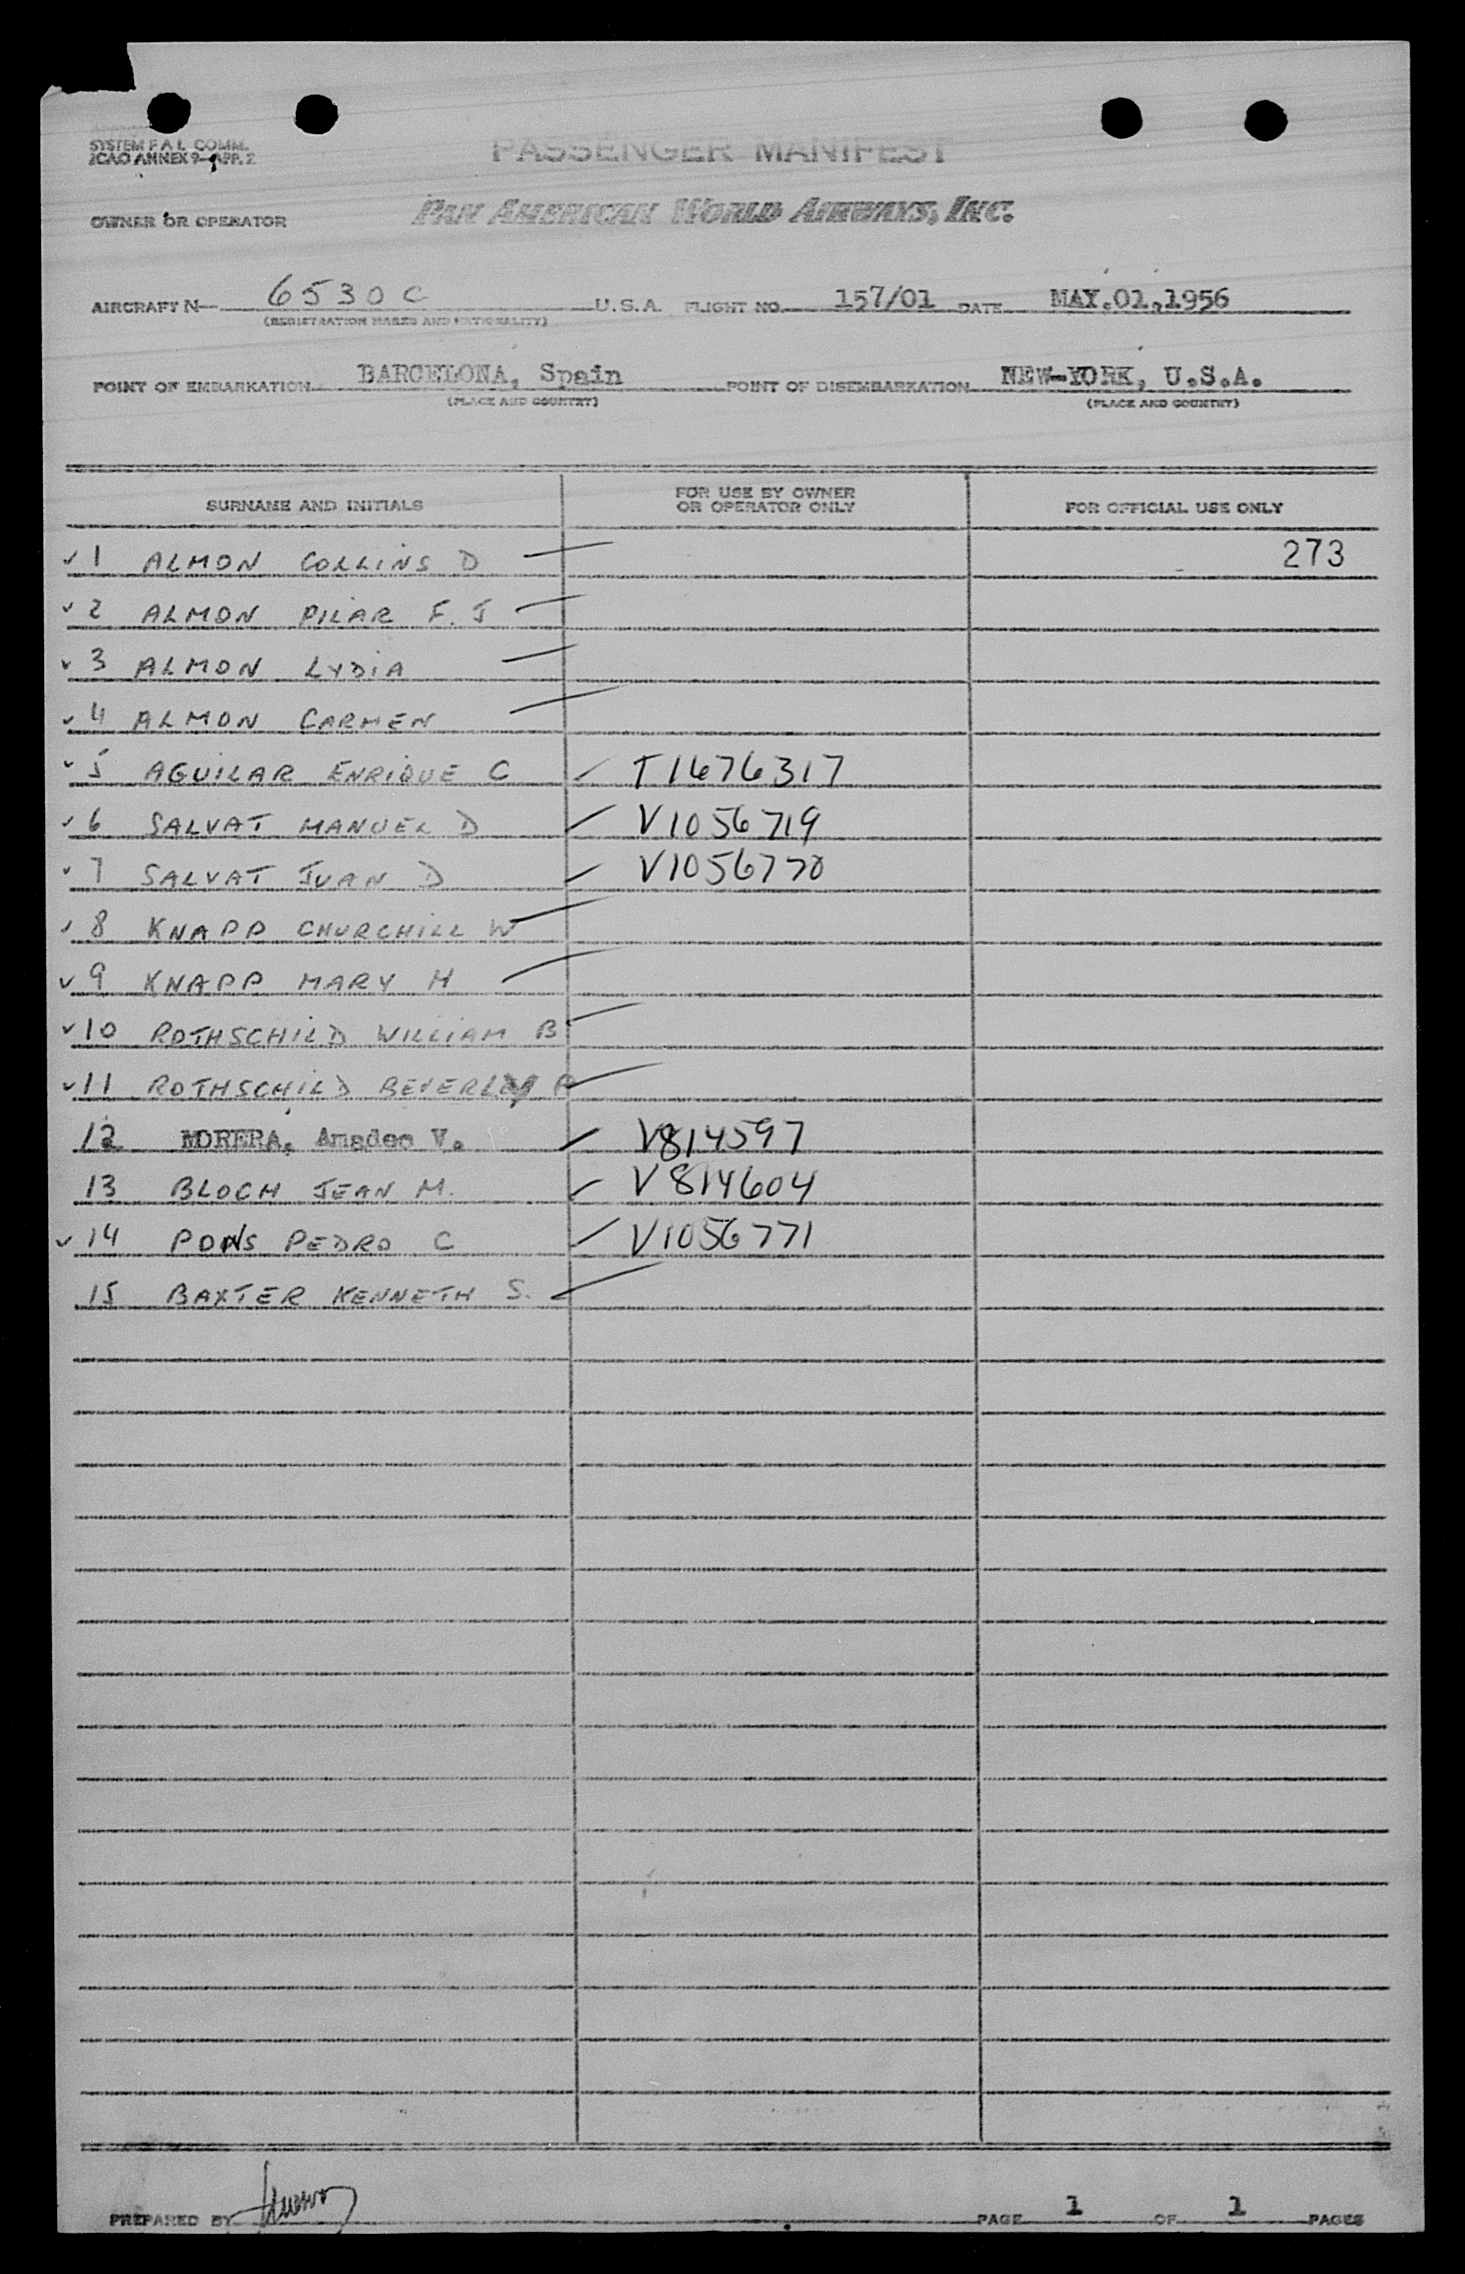 SYSTEM F A L COMM.
ICAO ANNEX 9-APP. 2
PASSENGER MANIFEST
OWNER OR OPERATOR PAN AMERICAN WORLD AIRWAYS, INC.
AIRCRAFT N- 6530C U.S.A. FLIGHT NO. 157/01 DATE MAY.01,1956
(REGISTRATION MARKS AND NATIONALITY)
POINT OF EMBARKATION BARCELONA, Spain POINT OF DISEMBARKATION NEW-YORK, U.S.A.
(PLACE AND COUNTRY) (PLACE AND COUNTRY)
SURNAME AND INITIALS FOR USE BY OWNER OR OPERATOR ONLY FOR OFFICIAL USE ONLY
✓ 1 ALMON COLLINS D — 273
✓ 2 ALMON PILAR F. J —
✓ 3 ALMON LYDIA —
✓ 4 ALMON CARMEN —
✓ 5 AGUILAR ENRIQUE C ✓ T1676317
✓ 6 SALVAT MANUEL D ✓ V1056719
✓ 7 SALVAT JUAN D ✓ V1056770
✓ 8 KNAPP CHURCHILL W —
✓ 9 KNAPP MARY H —
✓ 10 ROTHSCHILD WILLIAM B —
✓ 11 ROTHSCHILD BEVERLEY B —
12 MORERA, Amadeo V. ✓ V814597
13 BLOCH JEAN M. ✓ V814604
✓ 14 PONS PEDRO C ✓ V1056771
15 BAXTER KENNETH S. ✓
PREPARED BY PAGE 1 OF 1 PAGES